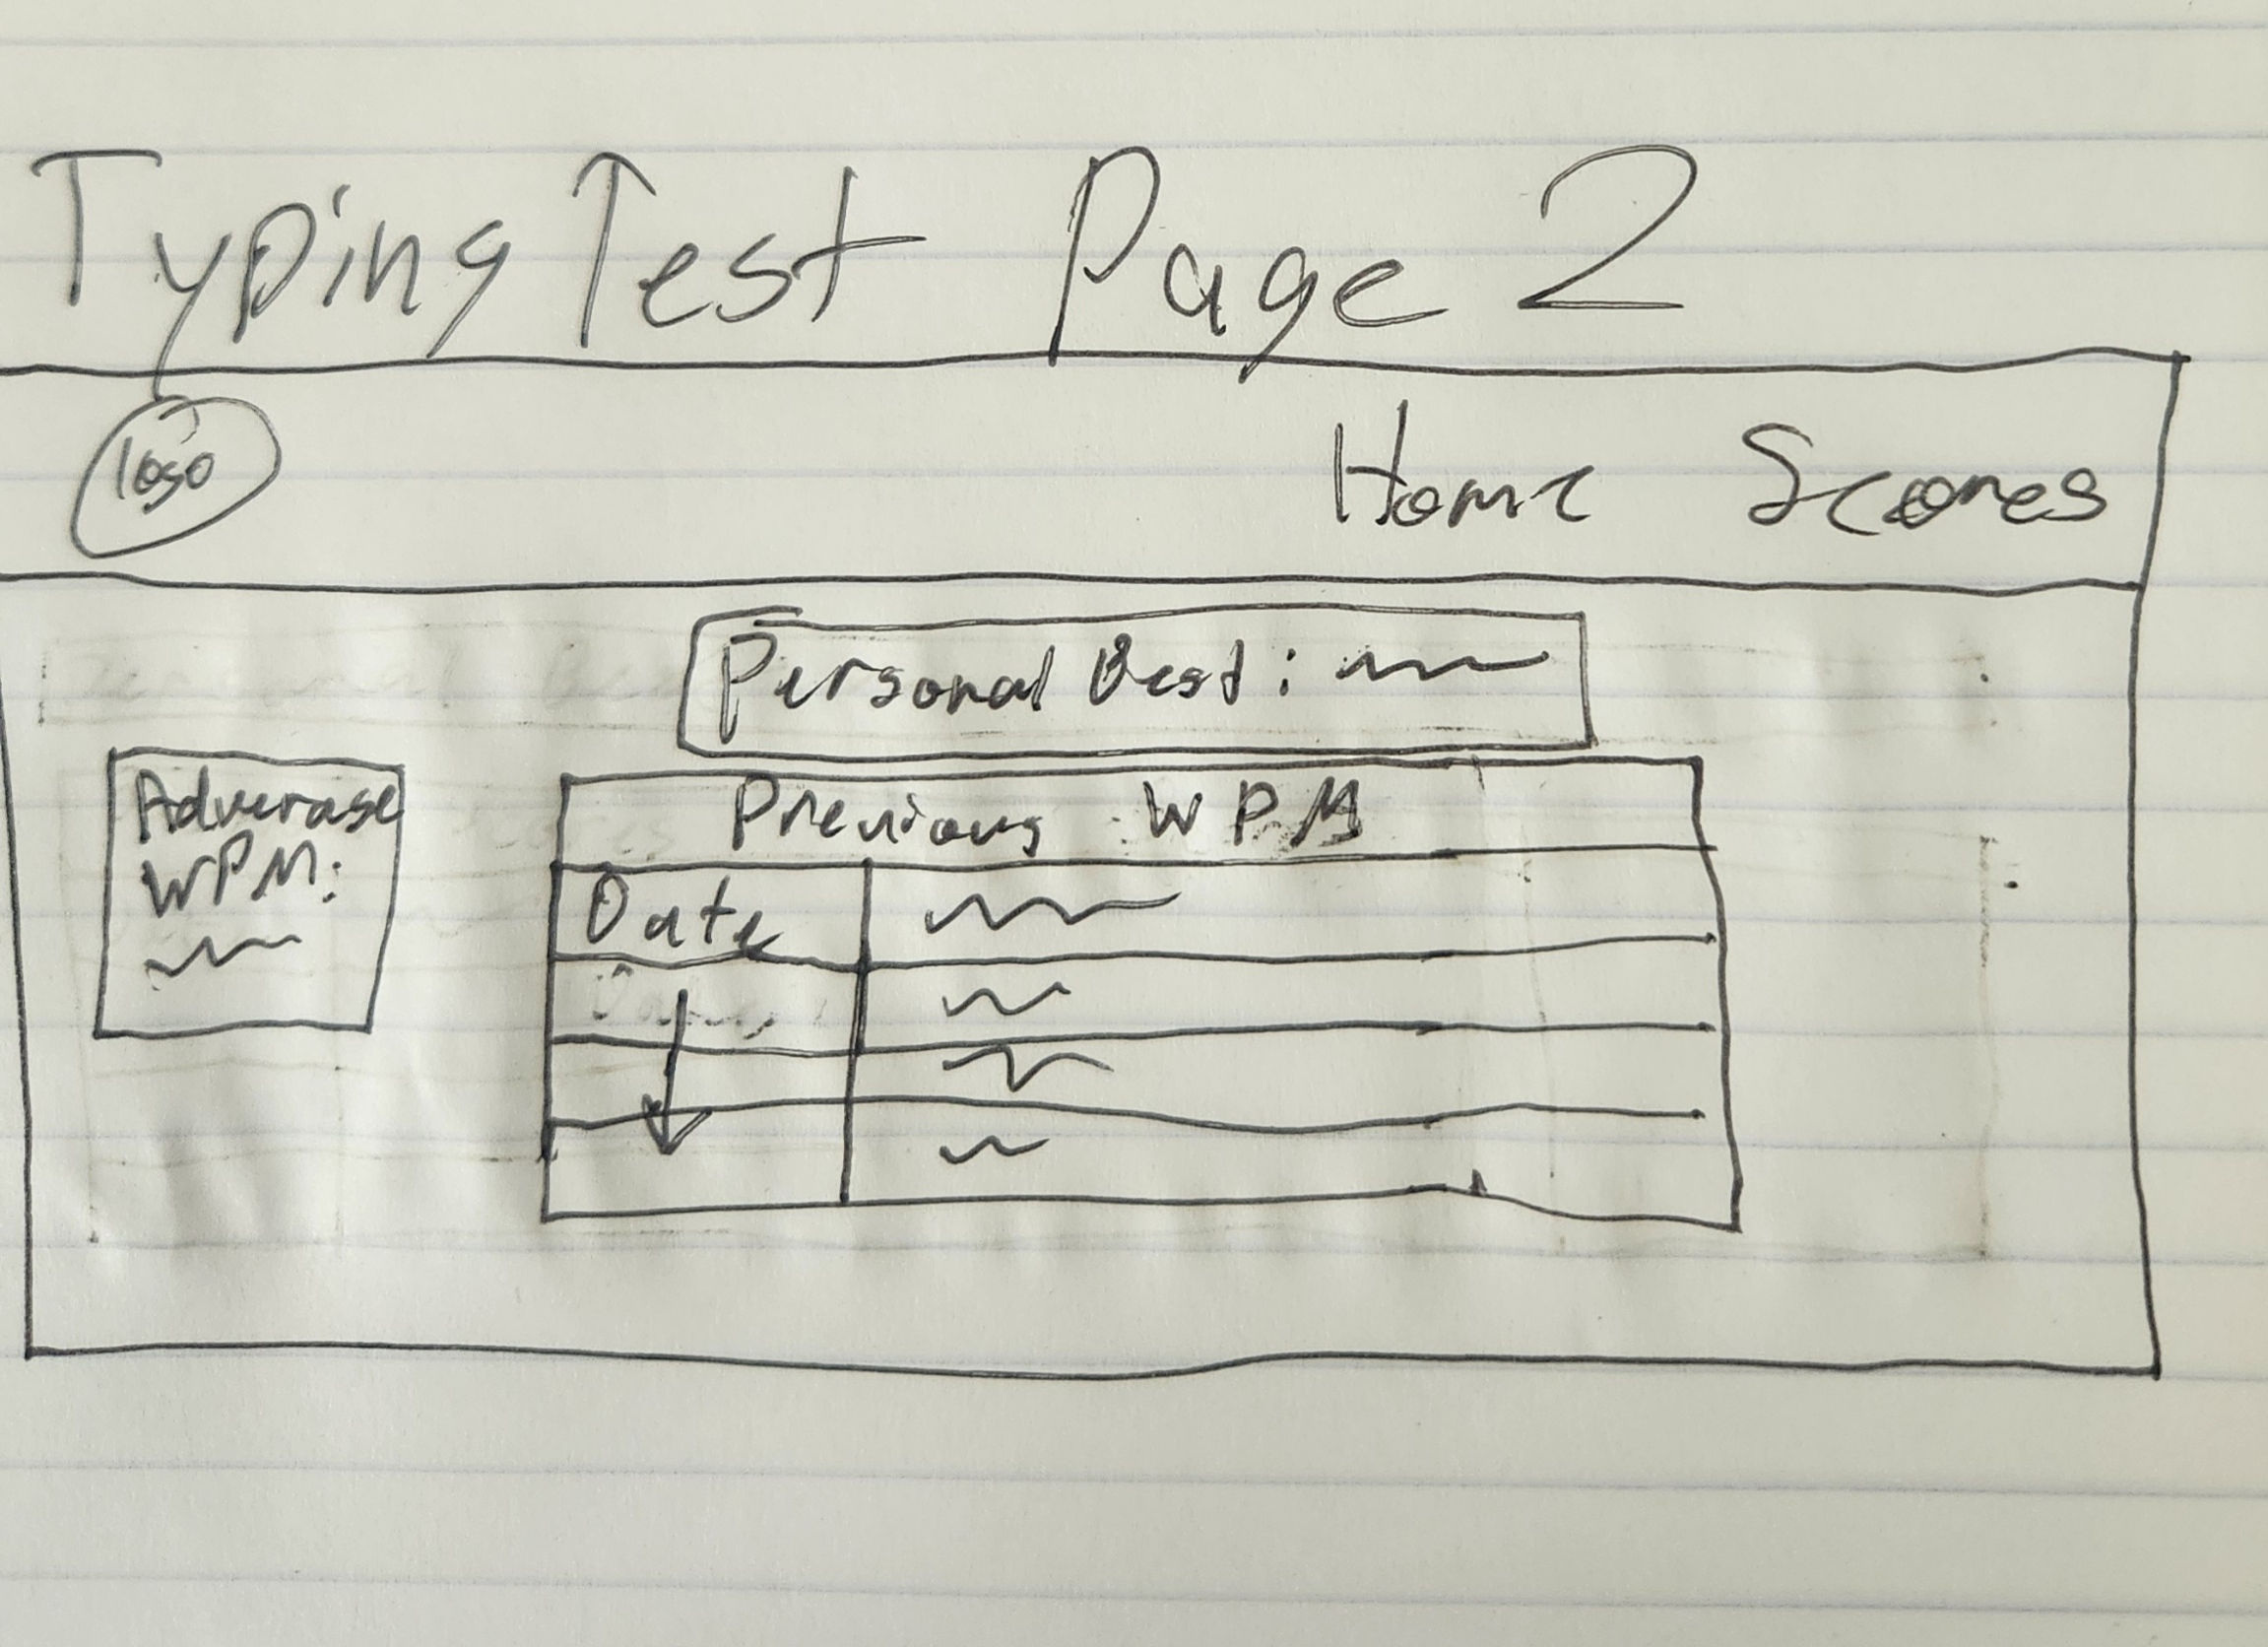 Typing Test Page 2
logo
Home Scores
Personal Best:
Adverase
WPM:
Previous WPM
Date